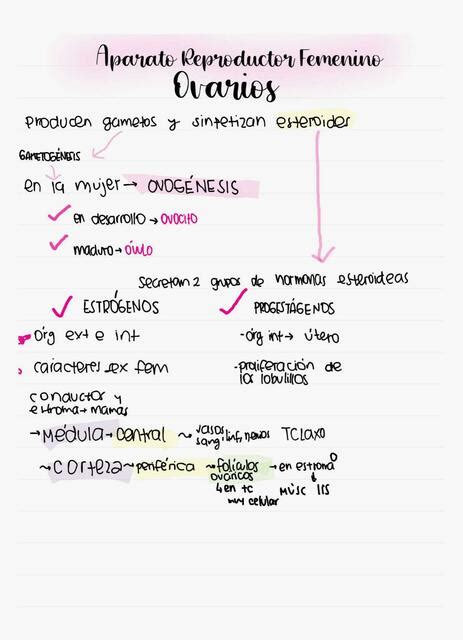 Aparato Reproductor Femenino
Ovarios
Producen gametos y sintetizan esteroides
GAMETOGÉNESIS
en la mujer → OVOGÉNESIS
✓ en desarrollo → OVOCITO
✓ maduro → óvulo
Secretan 2 grupos de hormonas esteroideas
✓ ESTRÓGENOS
✓ PROGESTÁGENOS
órg ext e int
-órg int → útero
caracteres sex fem
-proliferación de
los lobulillos
conductor y
estroma → mamas
→ Médula → central ~ vasos
sang, linf, nervios TC Laxo
~ corteza ~ periférica ~ folículos → en estroma
ováricos
↳ en tc
muy celular
músc lis